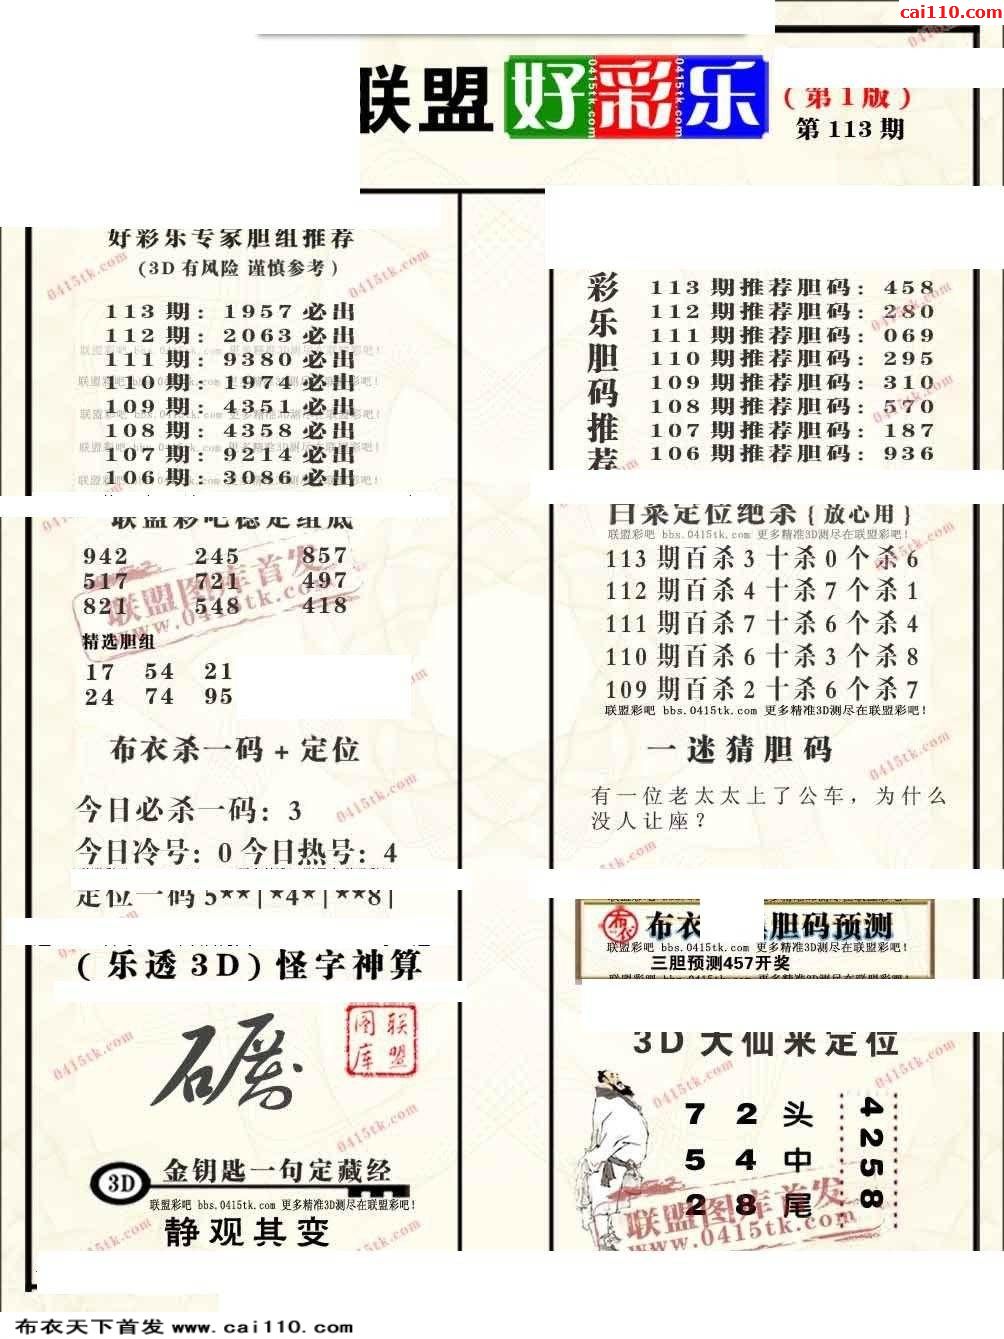 cai110.com
联盟 好彩乐
0415tk.com
0415tk.com
(第1版)
第113期
好彩乐专家胆组推荐
(3D有风险 谨慎参考)
113期: 1957必出
112期: 2063必出
111期: 9380必出
110期: 1974必出
109期: 4351必出
108期: 4358必出
107期: 9214必出
106期: 3086必出
联盟彩吧稳定组底
942 245 857
517 721 497
821 548 418
联盟图库首发
www.0415tk.com
精选胆组
17 54 21
24 74 95
布衣杀一码+定位
今日必杀一码: 3
今日冷号: 0 今日热号: 4
定位一码5**|*4*|**8|
(乐透3D)怪字神算
联盟图库
3D 金钥匙一句定藏经
联盟彩吧 bbs.0415tk.com 更多精准3D测尽在联盟彩吧!
静观其变
彩乐胆码推荐
113期推荐胆码: 458
112期推荐胆码: 280
111期推荐胆码: 069
110期推荐胆码: 295
109期推荐胆码: 310
108期推荐胆码: 570
107期推荐胆码: 187
106期推荐胆码: 936
白菜定位绝杀{放心用}
联盟彩吧 bbs.0415tk.com 更多精准3D测尽在联盟彩吧!
113期百杀3十杀0个杀6
112期百杀4十杀7个杀1
111期百杀7十杀6个杀4
110期百杀6十杀3个杀8
109期百杀2十杀6个杀7
联盟彩吧 bbs.0415tk.com 更多精准3D测尽在联盟彩吧!
一迷猜胆码
有一位老太太上了公车，为什么
没人让座？
布衣 胆码预测
联盟彩吧 bbs.0415tk.com 更多精准3D测尽在联盟彩吧!
三胆预测457开奖
3D大仙来定位
7 2 头
5 4 中
2 8 尾
4258
联盟图库首发
www.0415tk.com
布衣天下首发 www.cai110.com